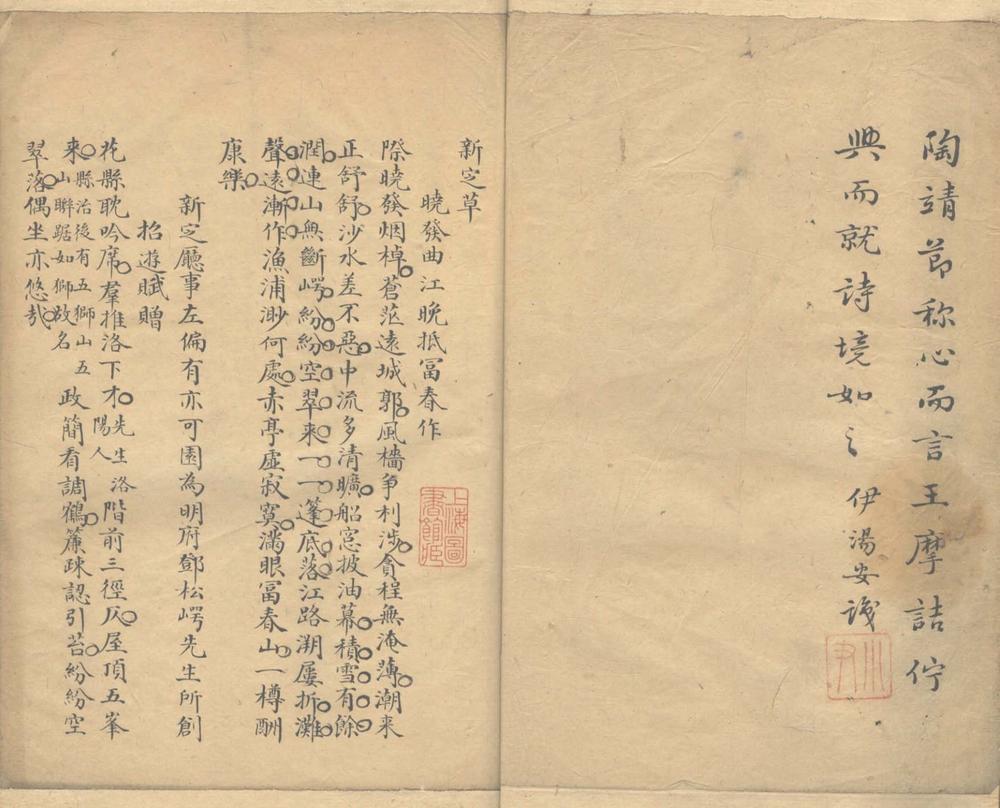 陶靖節称心而言王摩詰佇
興而就詩境如之 伊湯安識
小尹
新㝎草
曉發曲江晚抵冨春作
際曉發烟棹蒼茫遠城郭風檣争利涉貪程無淹薄潮来
正舒舒沙水差不惡中流多清曠船窓披油幕積雪有餘
潤連山無斷崿紛紛空翠来一一篷底落江路溯屢折灘
聲遠漸作漁浦渺何處赤亭虛寂寞滿眼冨春山一樽酬
康樂
上海圖書館藏
新㝎廳事左偏有亦可園為明府鄧松崿先生所創
招遊賦贈
花縣耽吟席羣推洛下才先生洛陽人階前三徑仄屋頂五峯
来縣治後有五獅山五山聨踞如獅故名政簡看調鶴簾疎認引苔紛紛空
翠落偶坐亦悠哉